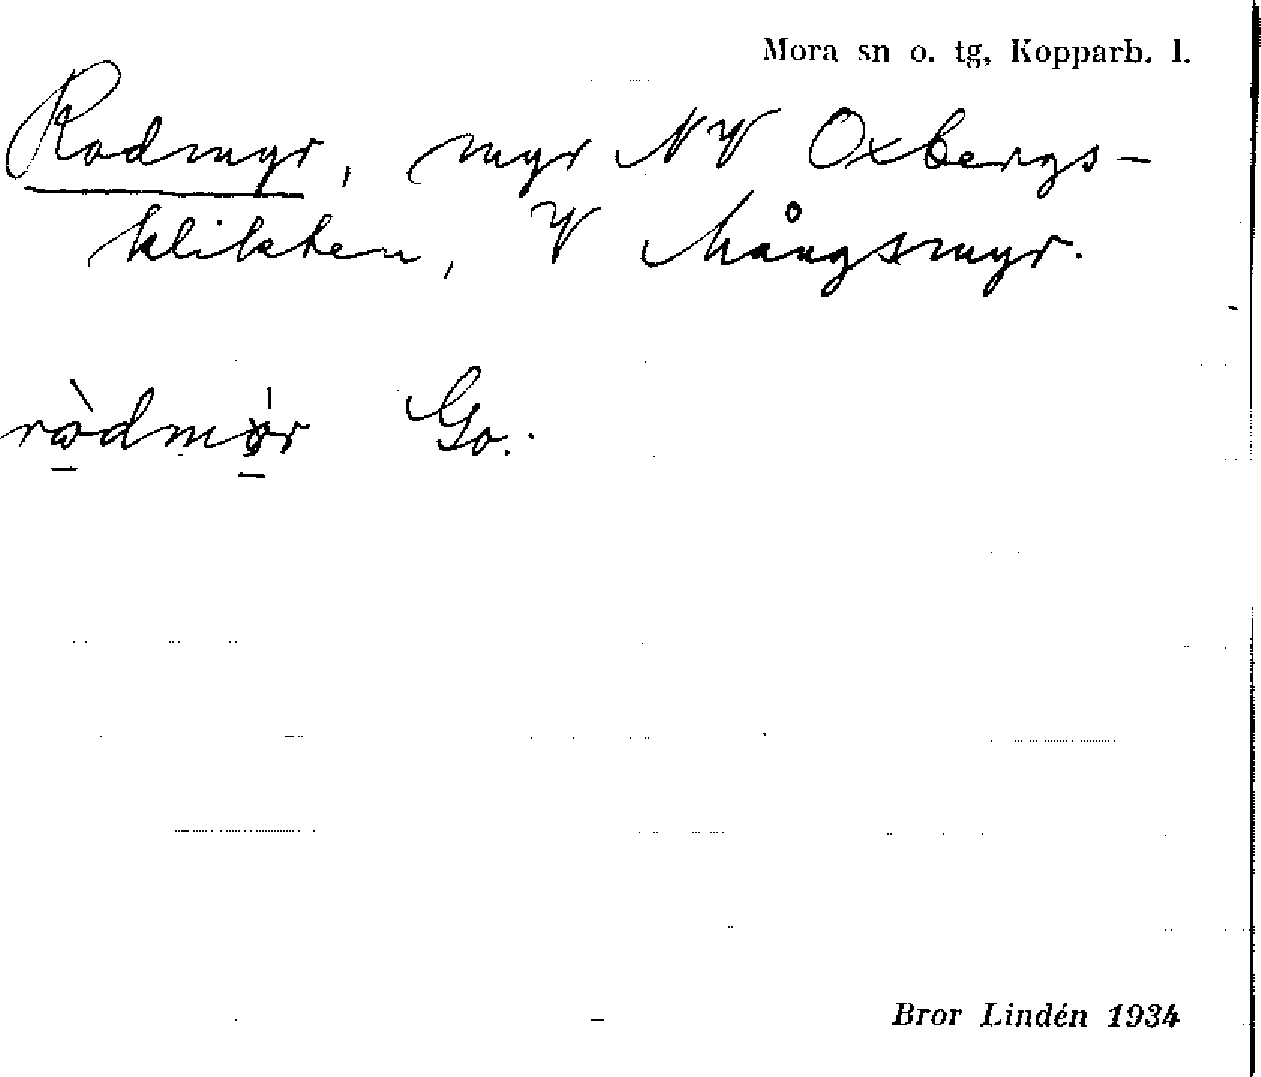 Mora sn o. tg, Kopparb. l.
Rodmyr, myr NV Oxbergs-
klikten, V Mångsmyr.
Go.
Bror Lindén 1934